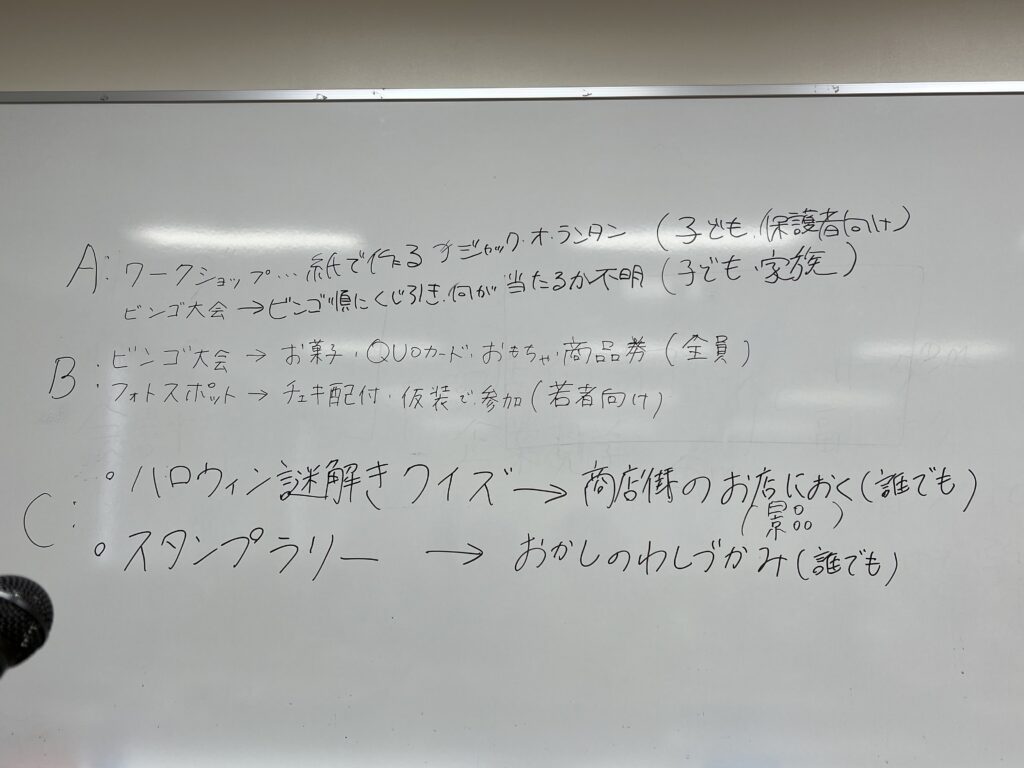 A: ワークショップ… 紙で作る ジャック・オ・ランタン (子ども、保護者向け)
ビンゴ大会 → ビンゴ順にくじ引き、何が当たるか不明 (子ども・家族)
B: ビンゴ大会 → お菓子・QUOカード・おもちゃ・商品券 (全員)
フォトスポット → チェキ配付・仮装で参加 (若者向け)
C: ° ハロウィン謎解きクイズ → 商店街のお店におく (誰でも)
(景品)
° スタンプラリー → おかしのわしづかみ (誰でも)